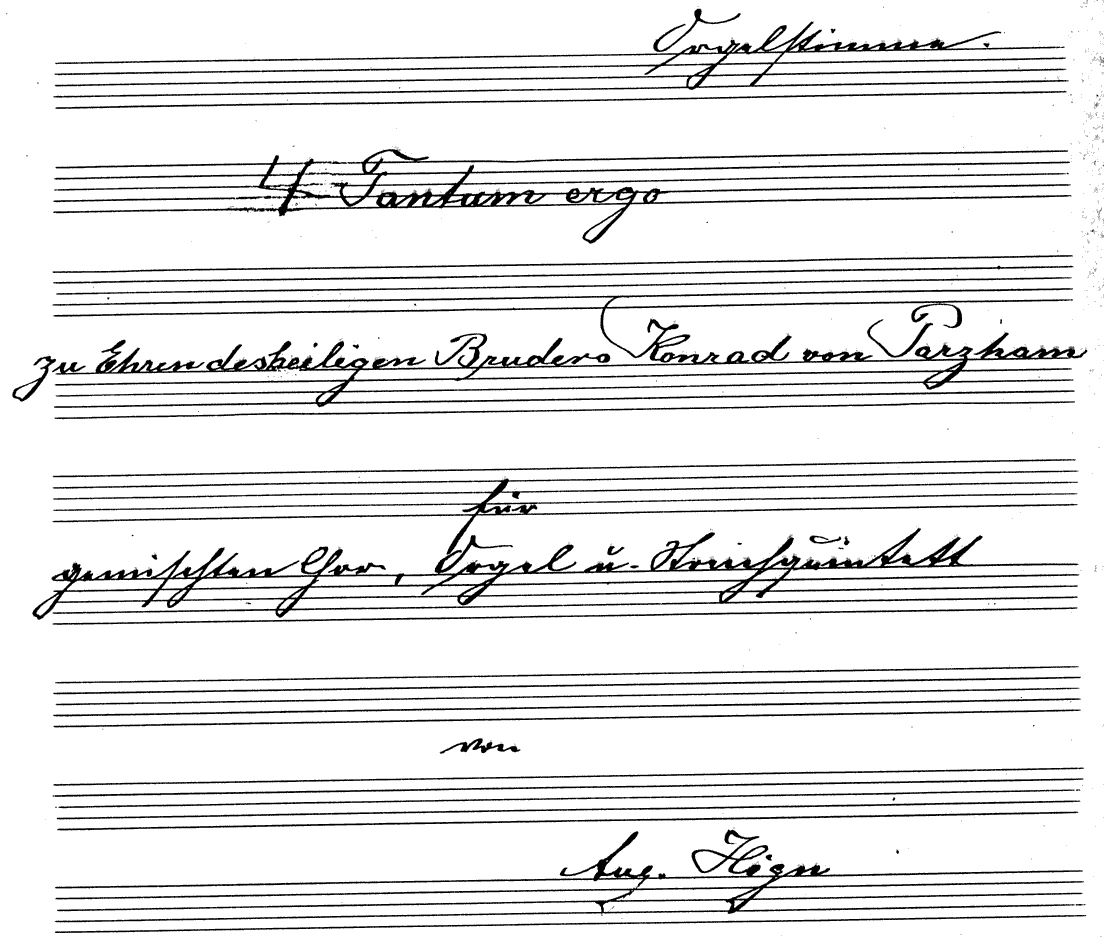 Orgelstimme.
4 Tantum ergo
zu Ehren des heiligen Bruders Konrad von Parzham
für
gemischten Chor, Orgel u. Streichquintett
von
Aug. Högn